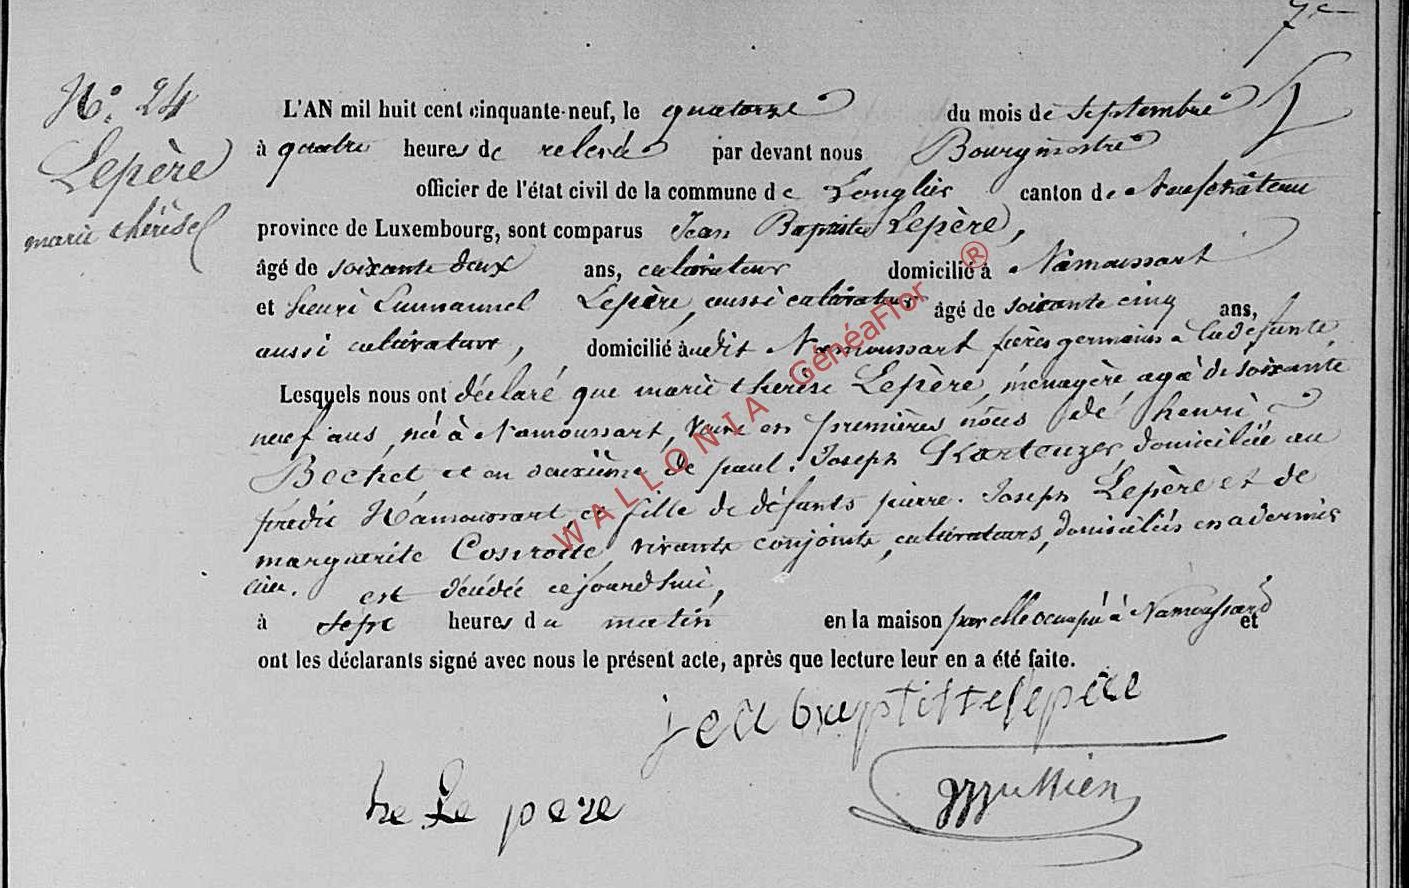 7e
N°. 24
Lepère
marie thérèse
L'AN mil huit cent cinquante-neuf, le quatorze du mois de septembre
à quatre heures de relevée par devant nous Bourgmestre
officier de l'état civil de la commune de Longlier canton de Neufchâteau
province de Luxembourg, sont comparus Jean Baptiste Lepère,
âgé de soixante deux ans, cultivateur domicilié à Namoussart
et henri Emmanuel Lepère, aussi cultivateur âgé de soixante cinq ans,
aussi cultivateur, domicilié àudit Namoussart frères germains a la defunte,
Lesquels nous ont déclaré que marie thérèse Lepère, ménagère agé de soixante
neuf ans, né à Namoussart, veuve en premières nôces de henri
Bechet et en deuxième de paul. Joseph domiciliée au
prédit Namoussart, fille de défunts pierre. Joseph Lepère et de
marguerite vivants conjoints, cultivateurs, domiciliés en dernier
lieu. est décédée cejourd'hui,
à sept heures du matin en la maison par elle occupé à Namoussard et
ont les déclarants signé avec nous le présent acte, après que lecture leur en a été faite.
jea baptiste lepère
he Le pere
WALLONIA GénéaFlor ®